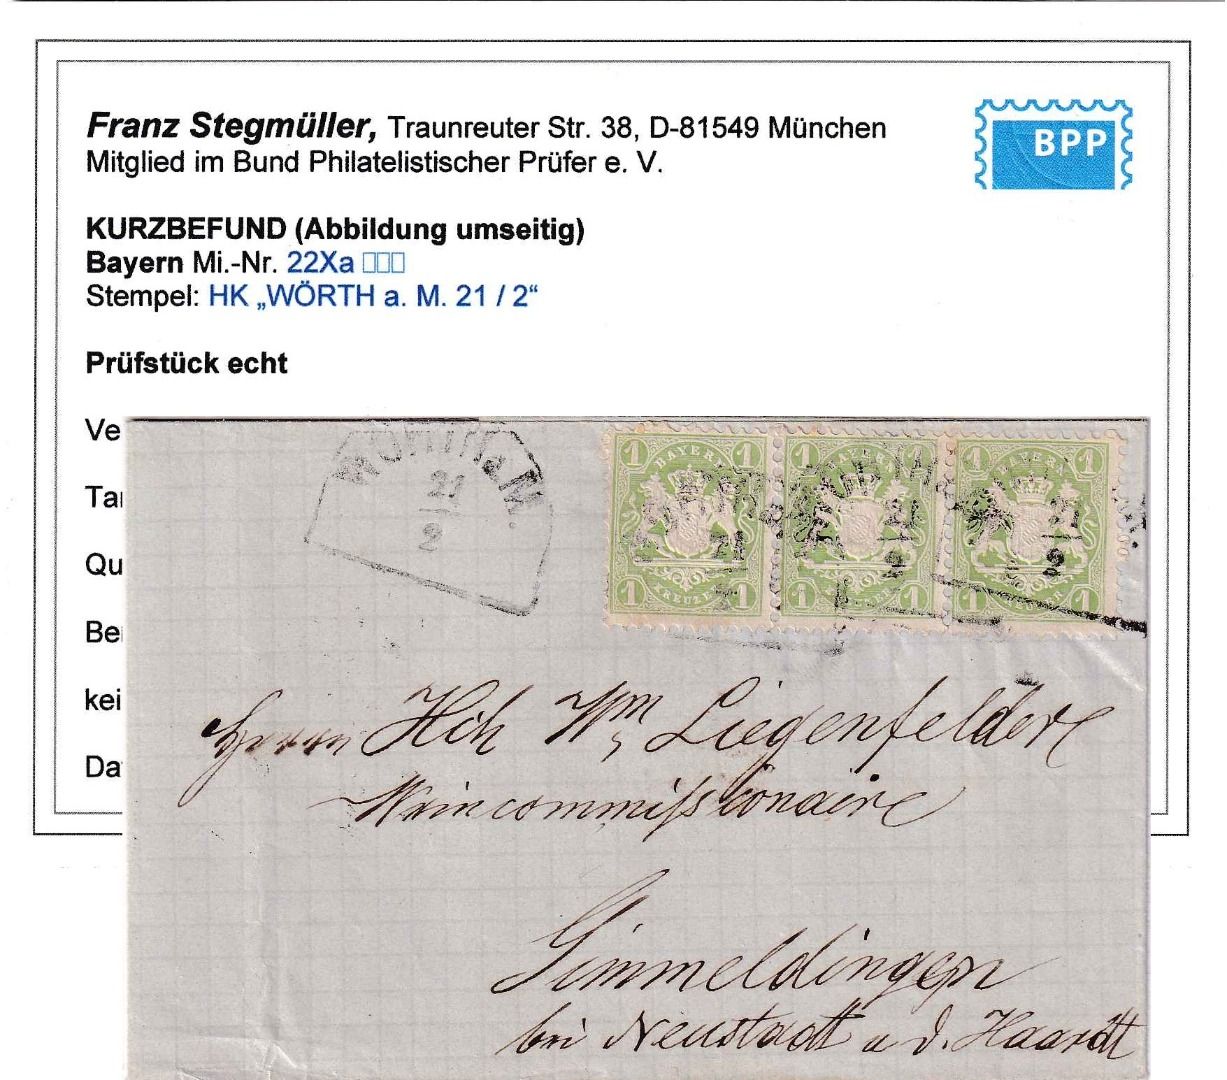 Franz Stegmüller, Traunreuter Str. 38, D-81549 München
Mitglied im Bund Philatelistischer Prüfer e. V.
BPP
KURZBEFUND (Abbildung umseitig)
Bayern Mi.-Nr. 22Xa □□□
Stempel: HK „WÖRTH a. M. 21 / 2“
Prüfstück echt
Ve
Ta
Qu
Be
kei
Da
WÖRTH a M.
21
2
1 BAYERN 1
1 KREUZER 1
21
1 BAYERN 1
1 KREUZER 1
21
2
1 BAYERN 1
1 KREUZER 1
21
2
Herrn Hch Wm Liegenfeldere
Weincommissionaire
Gimmeldingen
bei Neustadt a d. Haardt